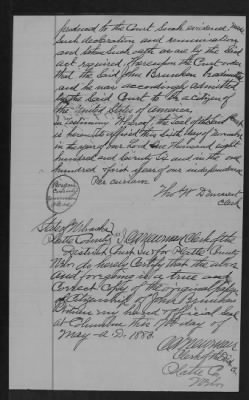 produced to the Court such evidence, made
such declaration and renunciation
and taken such oath as are by the said
act required. Thereupon the Court order
that the said John Brunken be admitted
and he was accordingly admitted
by the said Court to be a citizen of
the United States of America
In testimony Whereof the Seal of the said Court
is hereunto affixed this sixth day of November
in the year of our Lord One Thousand eight
hundred and Seventy Six and in the one
hundred and first year of our independence
Per curiam
Tho W. Dement
Clerk
State of Nebraska
Platte County
I, C A Newman Clerk of the
District Court in & for Platte County
Nebr do hereby Certify that the above
and foregoing is a true and
Correct Copy of the original papers
of Citizenship of John Brunken
Witness my hand & official Seal
at Columbus this day of
May A.D. 1883
C A Newman
Clerk of Dist Ct
Platte Co
Nebr